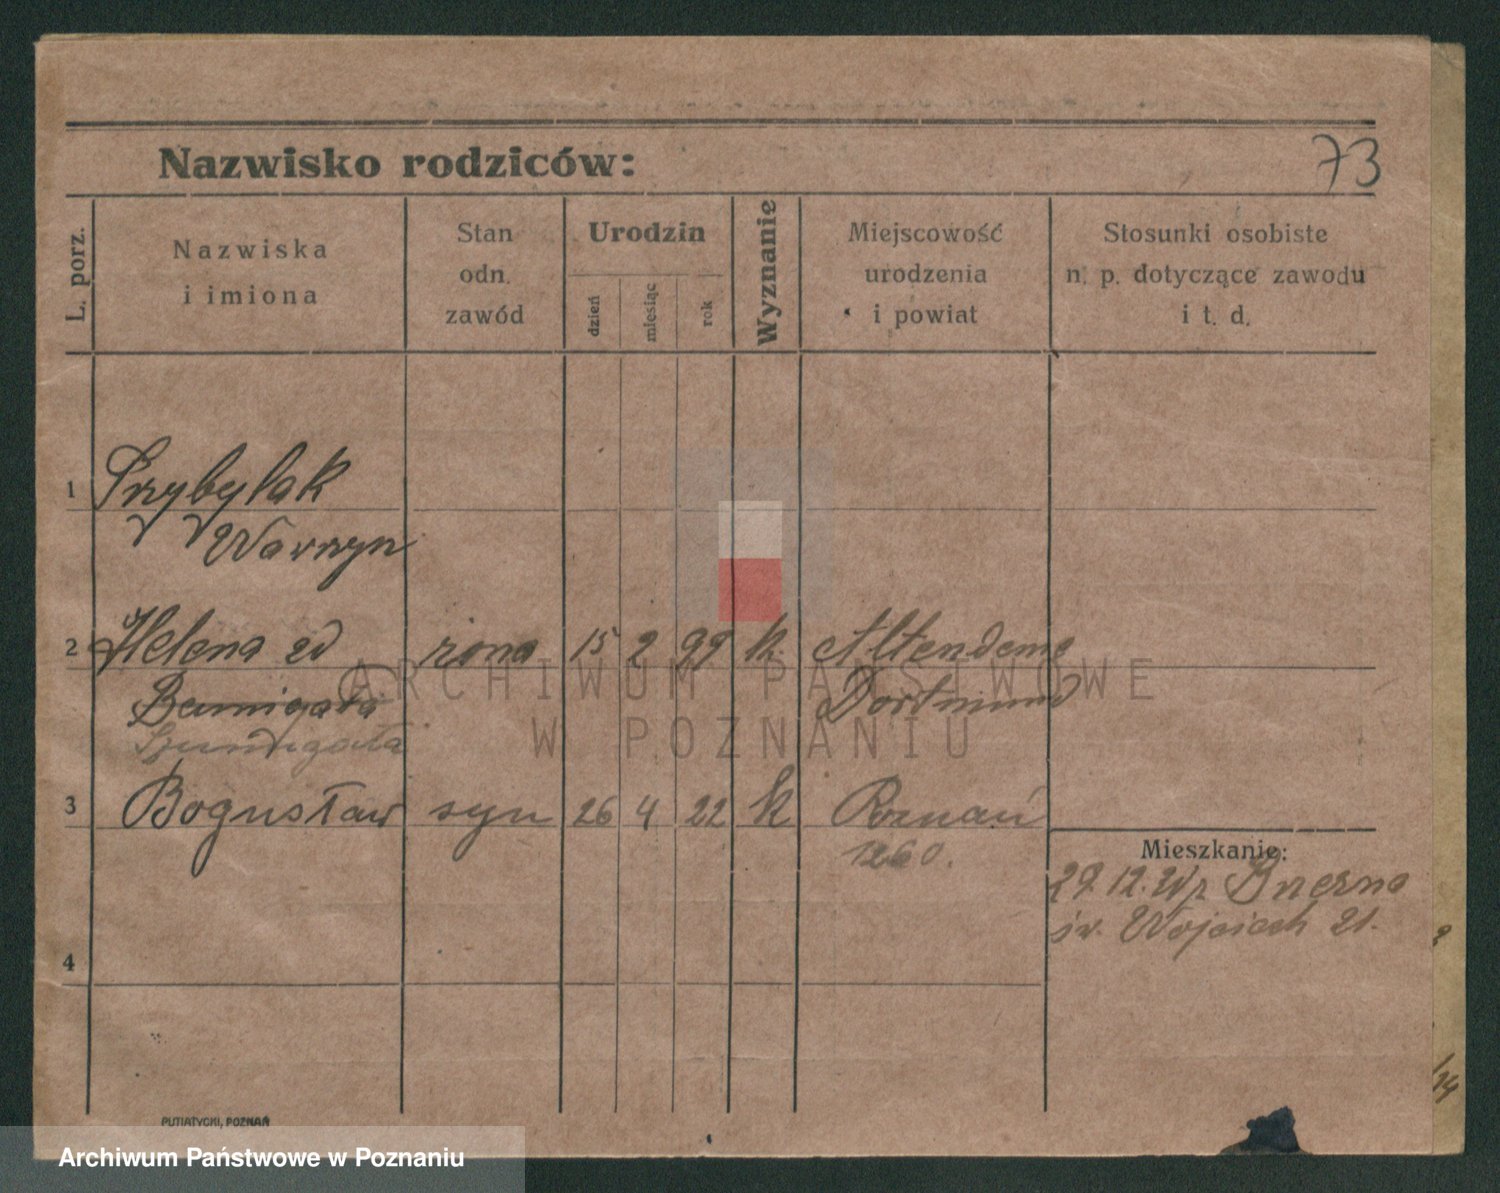 73
Nazwisko rodziców:
L. porz.
Nazwiska
i imiona
Stan
odn.
zawód
Urodzin
dzień
miesiąc
rok
Wyznanie
Miejscowość
urodzenia
i powiat
Stosunki osobiste
n. p. dotyczące zawodu
i t. d.
1 Przybylak
Wawrzyn
2 Helena zd żona 15 2 99 k. Altendeme
Dortmund
3 Bogusław syn 26 4 22 k Poznań
1260.
Mieszkanie:
29.12.
św. Wojciech 21.
4
PUTIATYCKI, POZNAŃ
ARCHIWUM PAŃSTWOWE
W POZNANIU
Archiwum Państwowe w Poznaniu